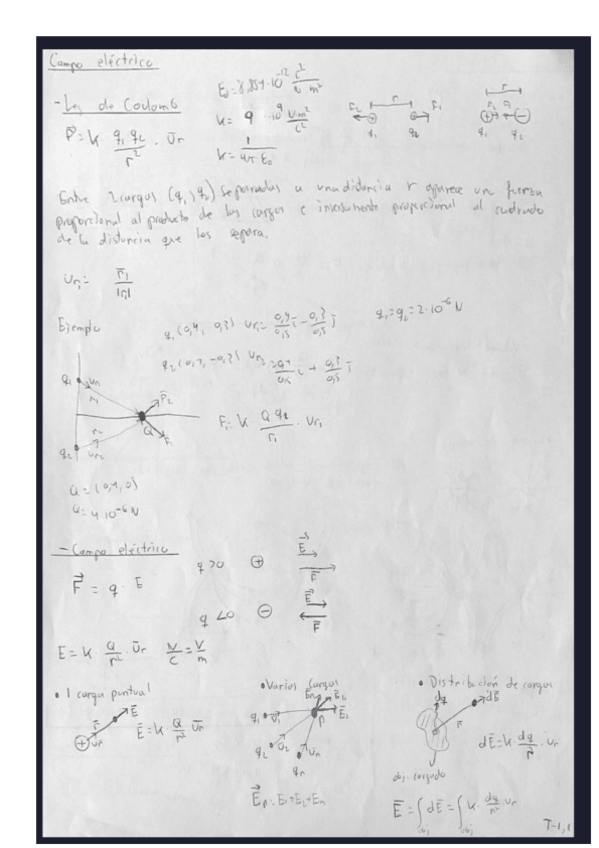 Campo eléctrico
- Ley de Coulomb
E₀=8,854·10⁻¹² C²/N m²
F = K q₁ q₂/r² · ūr
K = 9 ·10⁹ N·m²/C²
K = 1/4π E₀
r
F₂ F₁
q₁ q₂
r
F₂ F₁
q₁ q₂
Entre 2 cargas (q₁, q₂) separadas a una distancia r aparece un fuerza
proporcional al producto de las cargas e inversamente proporcional al cuadrado
de la distancia que los separa.
ur₁ = r̄₁/|r₁|
Ejemplo
q₁ = q₂ = 2·10⁻⁶ N
q₁ ur₁
r₁
F₂
Q F₁
r₂
q₂ ur₂
F₁ = K Q q₁/r₁ · ur₁
Q = (0,4,0)
Q = 4 10⁻⁶ N
- Campo eléctrico
F⃗ = q · E
q > 0 ⊕ E⃗ F⃗
q < 0 ⊖ E⃗ F⃗
E = K Q/r² · ūr N/C = V/m
• 1 carga puntual
r̄ Ē
⊕ ur
Ē = K Q/r² ūr
• Varias cargas
q₁ q₂ qn
P
E⃗p = E₁+E₂+En
• Distribución de cargas
dq dĒ
r
dĒ = K · dq/r² · ur
obj. cargado
Ē = ∫obj dĒ = ∫obj K · dq/r² · ur
T-1,1